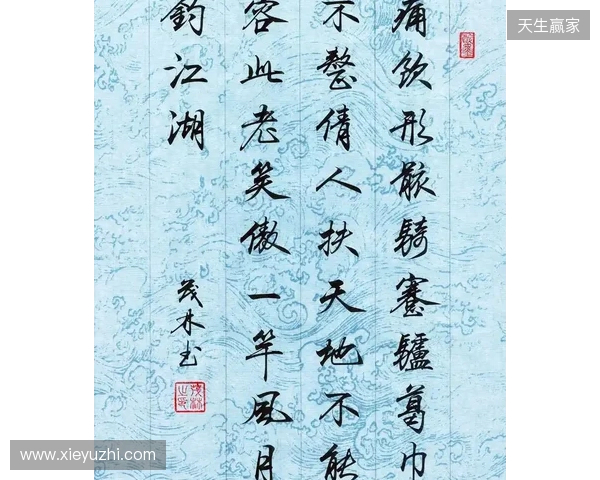 天生赢家
痛飲形骸騎蹇驢葛巾
不整倩人扶天地不能
容此老笑傲一竿風月
釣江湖
茂林书
www.xieyuzhi.com